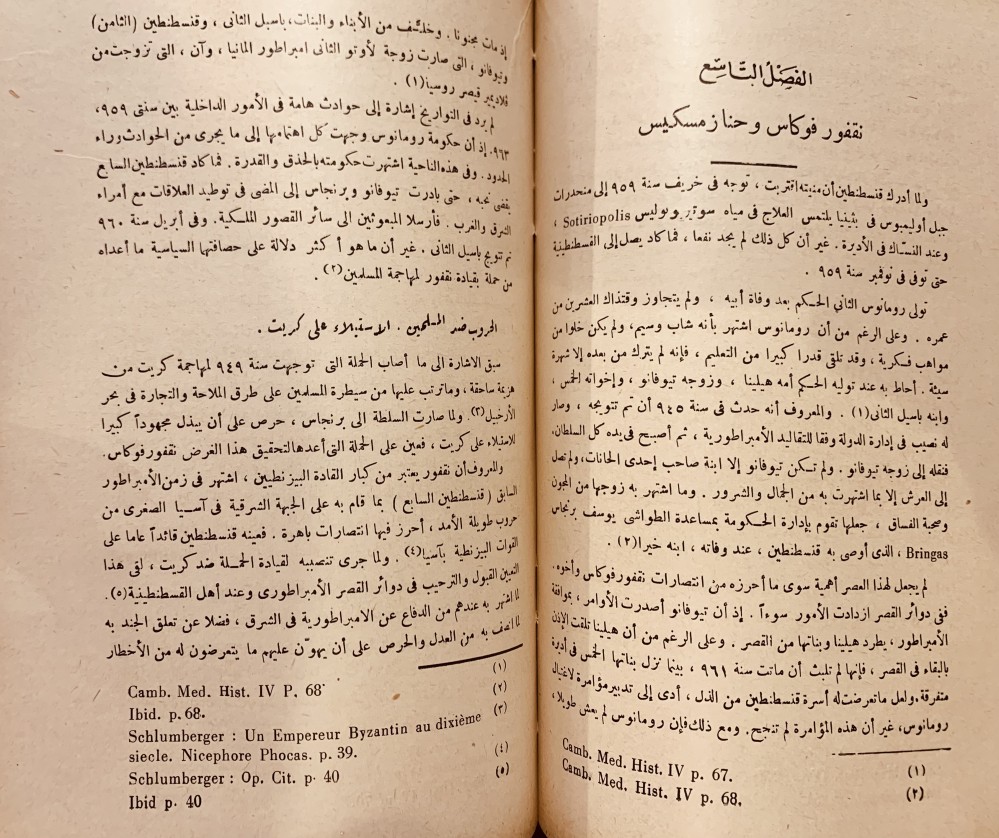 الفصل التاسع
نقفور فوكاس وحنا زمسكيس
ولما أدرك قنسطنطين أن منيته اقتربت ، توجه فى خريف سنة ٩٥٩ إلى منحدرات
جبل أوليمبوس فى بيثينيا يلتمس العلاج فى مياه سوتيروبوليس Sotiriopolis ،
وعند النساك فى الأديرة . غير أن كل ذلك لم يجد نفعا ، فما كاد يصل إلى القسطنطينية
حتى توفى فى نوفمبر سنة ٩٥٩ .
تولى رومانوس الثاني الحكم بعد وفاة أبيه ، ولم يتجاوز وقتذاك العشرين من
عمره . وعلى الرغم من أن رومانوس اشتهر بأنه شاب وسيم، ولم يكن خلوا من
مواهب فكرية ، وقد تلقى قدرا كبيرا من التعليم ، فإنه لم يترك من بعده إلا شهرة
سيئة . أحاط به عند توليه الحكم أمه هيلينا ، وزوجه تيوفانو ، وإخواته الخمس ،
وابنه باسيل الثانى(١) . والمعروف أنه حدث فى سنة ٩٤٥ أن تم تتويجه ، وصار
له نصيب فى إدارة الدولة وفقا للتقاليد الأمبراطورية ، ثم أصبح فى يده كل السلطان.
فنقله إلى زوجه تيوفانو . ولم تكن تيوفانو إلا ابنة صاحب إحدى الحانات، ولم تصل
إلى العرش إلا بما اشتهرت به من الجمال والشرور . وما اشتهر به زوجها من المجون
وصحبة الفساق ، جعلها تقوم بإدارة الحكومة بمساعدة الطواشى يوسف برنجاس
Bringas ، الذى أوصى به قنسطنطين ، عند وفاته ، ابنه خيرا(٢) .
لم يجعل لهذا العصر أهمية سوى ما أحرزه من انتصارات نقفور فوكاس وأخوه.
ففى دوائر القصر ازدادت الأمور سوءاً . إذ أن تيوفانو أصدرت الأوامر ، بموافقة
الأمبراطور ، بطرد هيلينا وبناتها من القصر . وعلى الرغم من أن هيلينا تلقت الإذن
بالبقاء فى القصر ، فإنها لم تلبث أن ماتت سنة ٩٦١ ، بينما نزل بناتها الخمس فى أديرة
متفرقة. ولعل ما تعرضت له أسرة قنسطنطين من الذل ، أدى إلى تدبير مؤامرة لاغتيال
رومانوس، غير أن هذه المؤامرة لم تنجح . ومع ذلك فإن رومانوس لم يعش طويلا ،
(١) Camb. Med. Hist. IV p. 67.
(٢) Camb. Med. Hist. IV p. 68.
إذ مات مجنونا . وخلَّف من الأبناء والبنات، باسيل الثانى ، وقنسطنطين (الثامن)
وتيوفانو ، التى صارت زوجة لأوتو الثانى امبراطور المانيا ، وآن ، التى تزوجت من
فلاديمير قيصر روسيا(١) .
لم يرد فى التواريخ إشارة إلى حوادث هامة فى الأمور الداخلية بين سنتى ٩٥٩،
٩٦٣. إذ أن حكومة رومانوس وجهت كل اهتمامها إلى ما يجرى من الحوادث وراء
الحدود . وفى هذه الناحية اشتهرت حكومته بالحذق والقدرة . فما كاد قنسطنطين السابع
يقضى نحبه ، حتى بادرت تيوفانو وبرنجاس إلى المضى فى توطيد العلاقات مع أمراء
الشرق والغرب . فأرسلا المبعوثين الى سائر القصور الملكية. وفى أبريل سنة ٩٦٠
تم تتويج باسيل الثانى . غير أن ما هو أكثر دلالة على حصافتها السياسية ما أعداه
من حملة بقيادة نقفور لمهاجمة المسلمين(٢) .
الحروب ضد المسلمين . الاستيلاء على كريت .
سبق الاشارة الى ما أصاب الحملة التى توجهت سنة ٩٤٩ لمهاجمة كريت من
هزيمة ساحقة ، وما ترتب عليها من سيطرة المسلمين على طرق الملاحة والتجارة فى بحر
الأرخبيل(٣). ولما صارت السلطة الى برنجاس ، حرص على أن يبذل مجهوداً كبيرا
للاستيلاء على كريت ، فعين على الحملة التى أعدها لتحقيق هذا الغرض نقفور فوكاس.
والمعروف أن نقفور يعتبر من كبار القادة البيزنطيين ، اشتهر فى زمن الأمبراطور
السابق ( قنسطنطين السابع ) بما قام به على الجبهة الشرقية فى آسيا الصغرى من
حروب طويلة الأمد ، أحرز فيها انتصارات باهرة . فعينه قنسطنطين قائداً عاما على
القوات البيزنطية بآسيا(٤) . ولما جرى تنصيبه لقيادة الحملة ضد كريت ، لقى هذا
التعيين القبول والترحيب فى دوائر القصر الأمبراطورى وعند أهل القسطنطينية(٥).
لما اشتهر به عندهم من الدفاع عن الامبراطورية فى الشرق ، فضلا عن تعلق الجند به
لما اتصف به من العدل والحرص على أن يهوّن عليهم ما يتعرضون له من الأخطار
(١) Camb. Med. Hist. IV P. 68
(٢) Ibid. p. 68.
(٣) Schlumberger : Un Empereur Byzantin au dixième
siecle. Nicephore Phocas. p. 39.
(٤) Schlumberger : Op. Cit. p. 40
(٥) Ibid p. 40